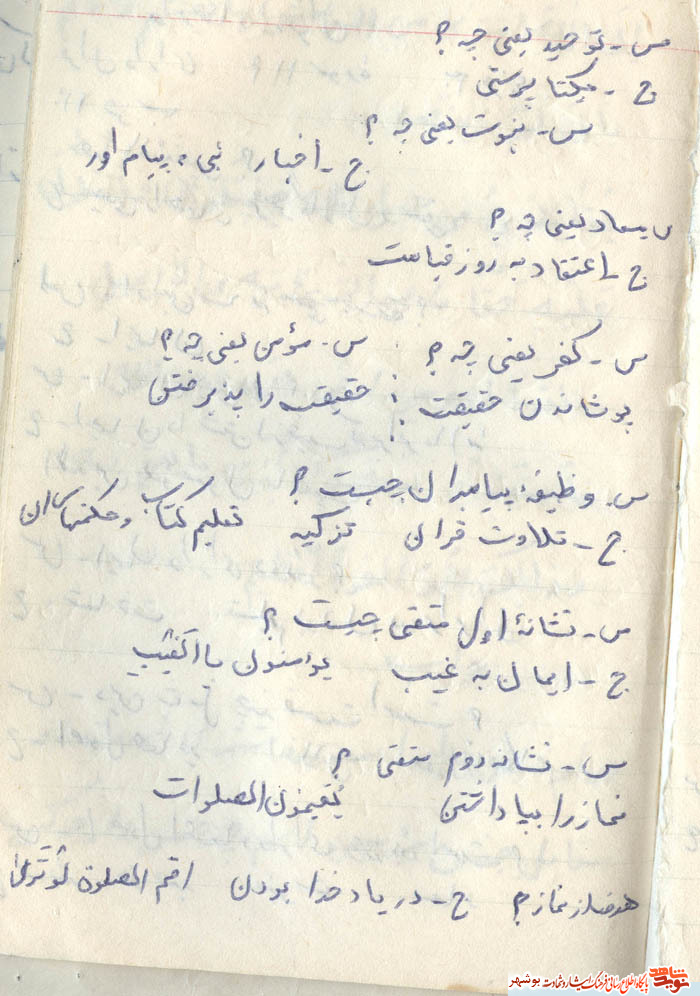 س - توحید یعنی چه ؟
ج - یکتا پرستی
س - نبوت یعنی چه ؟
ج - اخبار، نبی، پیام اور
س معاد یعنی چه ؟
ج - اعتقاد به روز قیامت
س - کفر یعنی چه ؟ : س - مؤمن یعنی چه ؟
پوشاندن حقیقت : حقیقت را پذیرفتن
س - وظیفۀ پیامبران چیست ؟
ج - تلاوت قران تزکیه تعلیم کتاب و حکمتهای ان
س - نشانۀ اول متقی چیست ؟
ج - ایمان به غیب یؤمنون بالغیب
س - نشانه دوم متقی ؟
نماز را بپاداشتن یقیمون الصلوات
هدف از نماز ؟ ج - در یاد خدا بودن اقم الصلوة
نوید شاهد پایگاه اطلاع رسانی فرهنگ ایثار و شهادت بوشهر